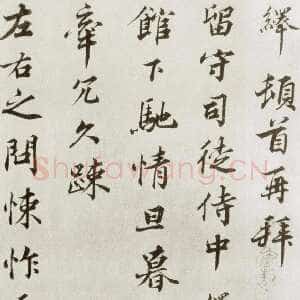 繹頓首再拜
留守司徒侍中
館下馳情旦暮
牽冗久踈
左右之問悚怍
Shufawang.CN